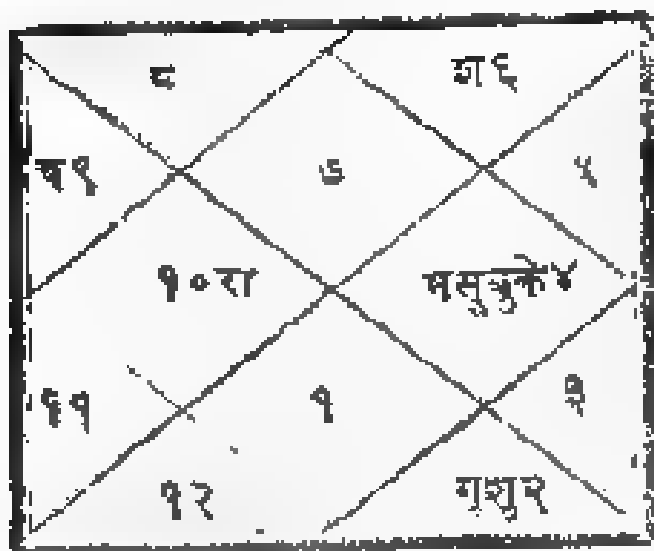 ८ श६
च९ ७ ५
१०रा मसुबुके४
११ १ ३
१२ गुशु२